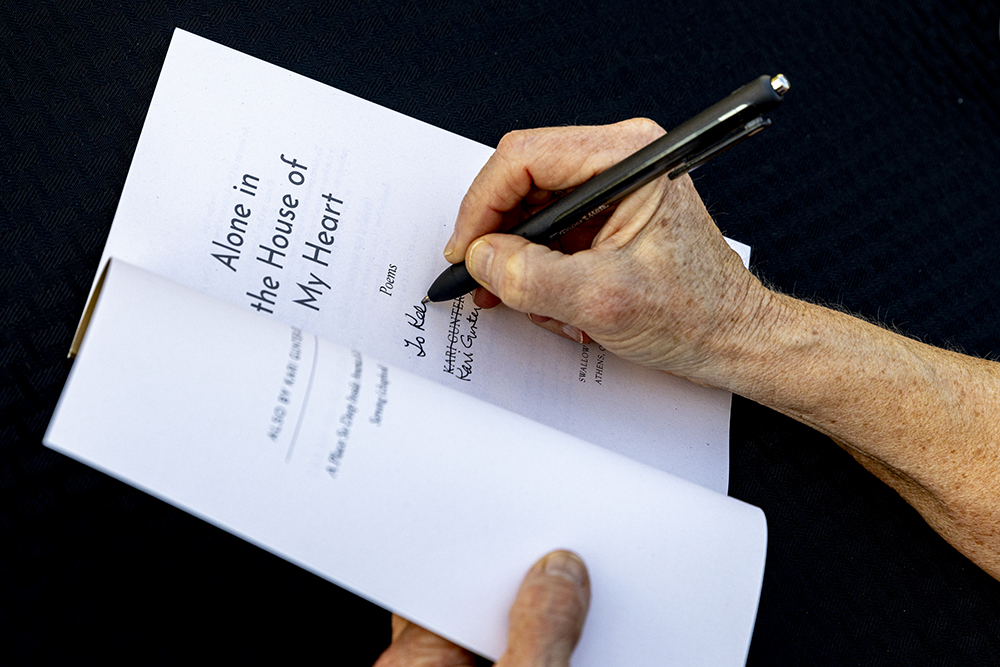 Alone in
the House of
My Heart
Poems
To
KARI GUNTER
Kari Gunter
SWALLOW
ATHENS, O
ALSO BY KARI GUNTER
A Place So Deep Inside
Serving